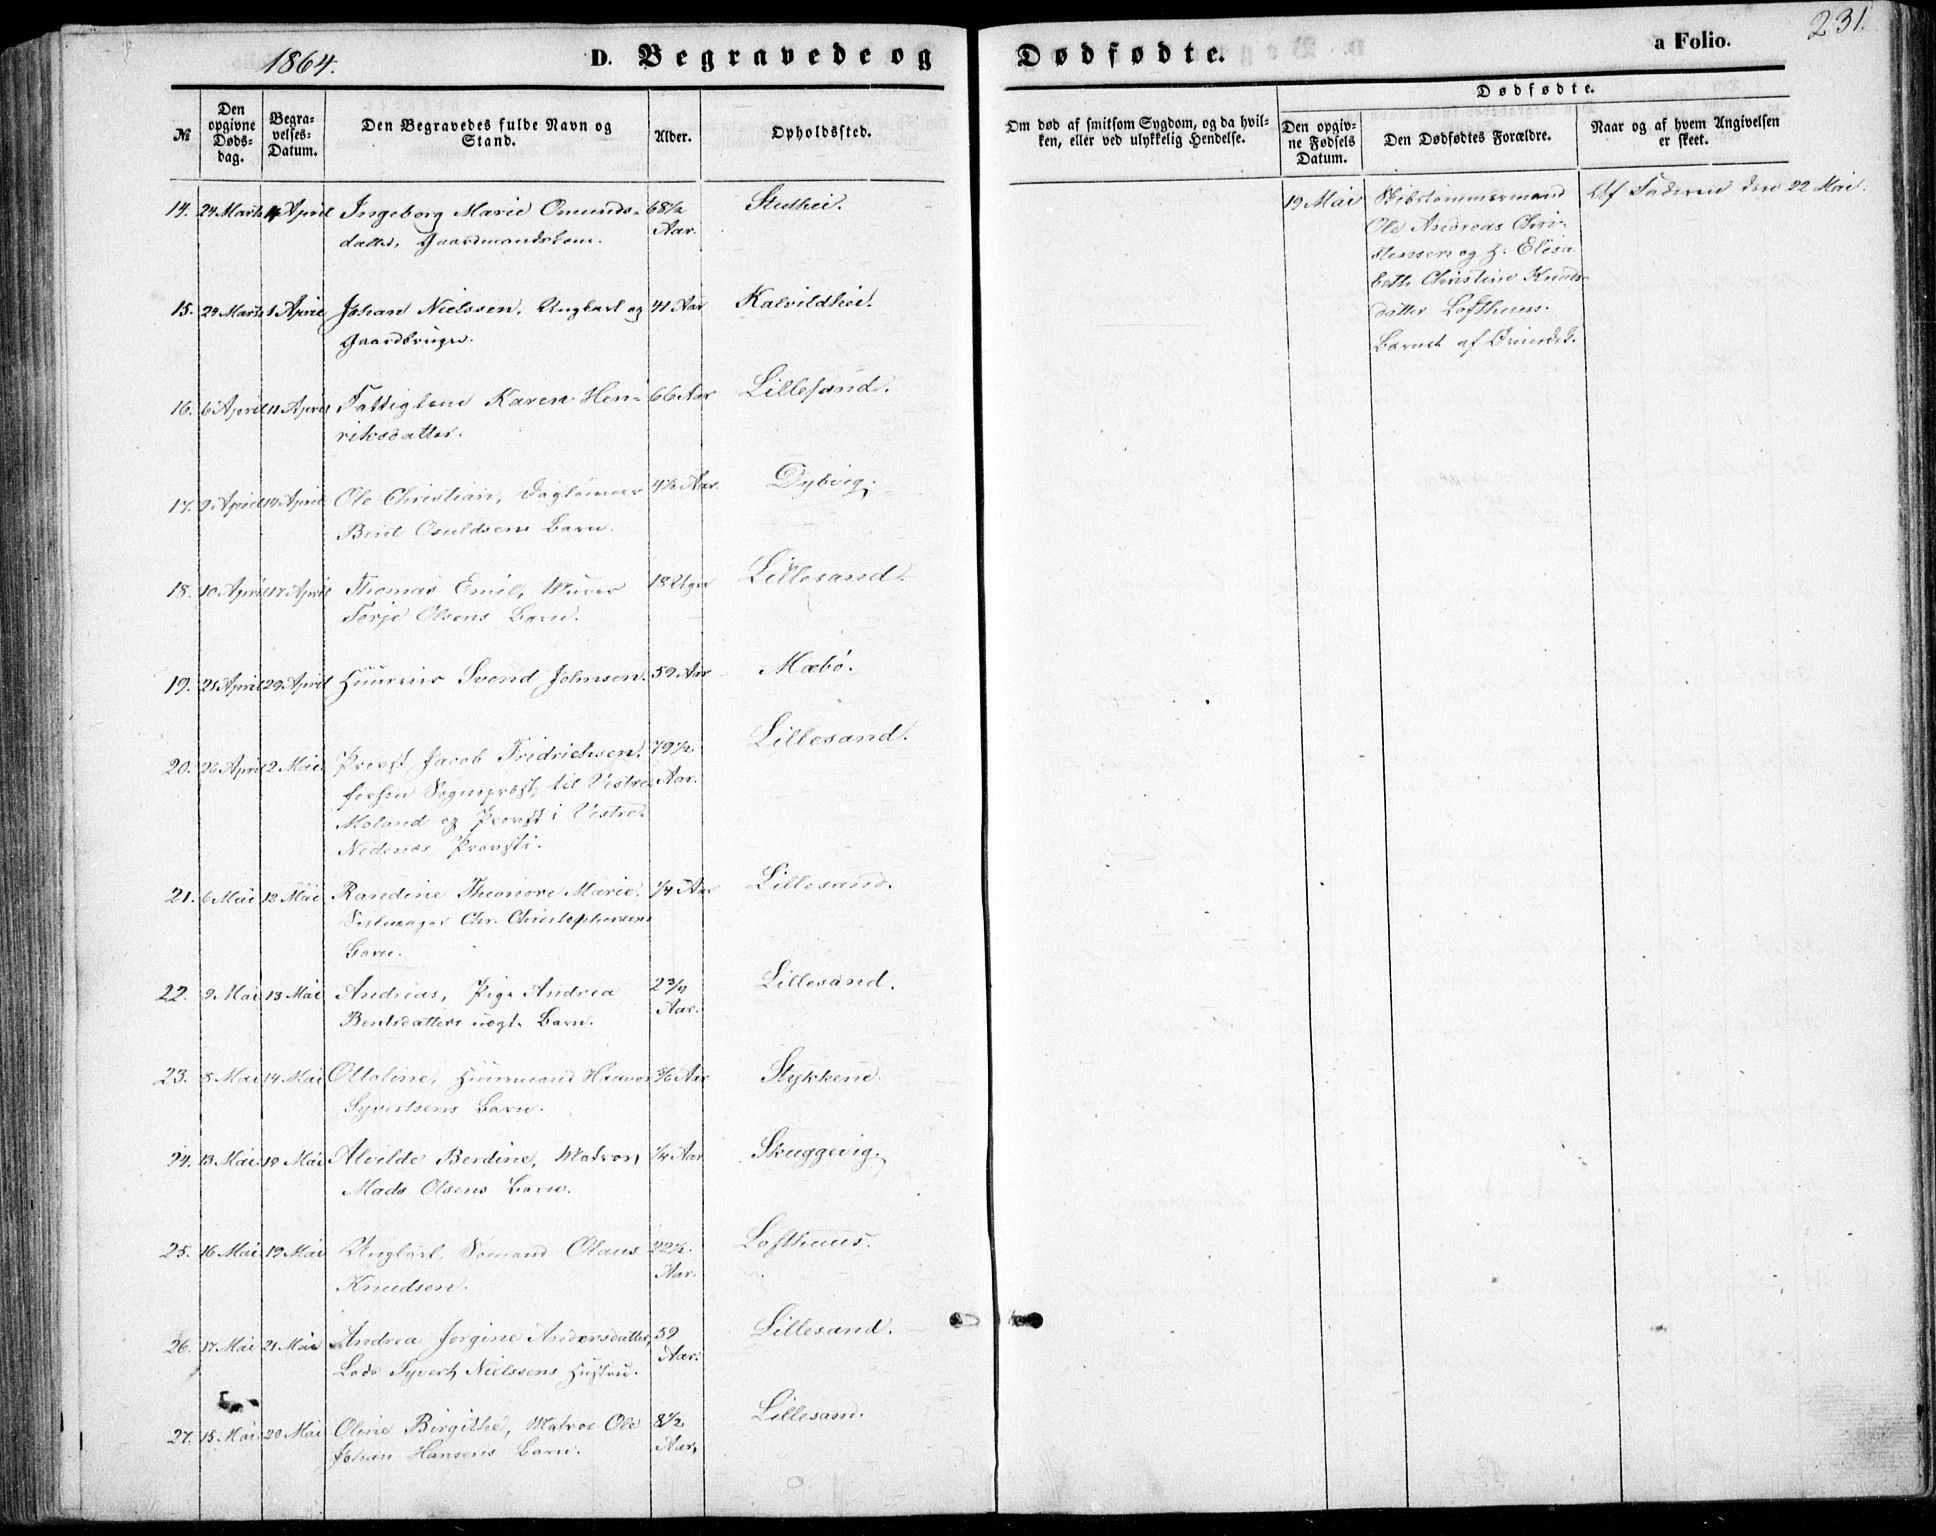 1864.
D. Begravede og Dødfødte.
a Folio.
231.
№
Den opgivne Døds-dag.
Begra-velses-Datum.
Den Begravedes fulde Navn og Stand.
Alder.
Opholdssted.
Om død af smitsom Sygdom, og da hvil-
ken, eller ved ulykkelig Hendelse.
Dødfødte.
Den opgiv-ne Fødsels Datum.
Den Dødfødtes Forældre.
Naar og af hvem Angivelsen er skeet.
14. 24 Marts 4 April Ingeborg Marie Omunds- 68½ Stuthei.
datter, Gaardmandskone. Aar.
15. 24 Marts 1 April Johan Nielssen, Ungkarl og 41 Aar Kalvildhei.
Gaardbruger.
16. 6 April 11 April Fattiglem Karen Hen- 66 Aar Lillesand.
riksdatter.
17. 9 April 14 April Ole Christian, Daglønner 4½ Aar. Dybvig.
Berit Osuldsens Barn.
18. 10 April 17 April Thomas Emil, Murer 18 Uger Lillesand.
Terje Olsens Barn.
19. 21 April 29 April Huusmand Svend Johnsen. 59 Aar Mæbø.
20. 26 April 2 Mai Provst Jacob Fridrichsen, 79½ Lillesand.
forhen Sogneprest til Vestre Aar.
Moland og Provst i Vestre
Nedenæs Provsti.
21. 6 Mai 12 Mai Randine Theonore Marie. ¼ Aar Lillesand.
Seilmager Chr. Christophersens
Barn.
22. 9 Mai 13 Mai Andreas, Pige Andrea 2¾ Lillesand.
Bentsdatters uegt. Barn. Aar.
23. 8 Mai 14 Mai Ottoline, Huusmand Haavor 3/6 Aar Stykkene.
Syvertsens Barn.
24. 13 Mai 19 Mai Alvilde Berdine, Matros ¼ Aar Skuggevig.
Mads Olsens Barn.
25. 16 Mai 19 Mai Ungkarl, Sømand Olaus 22½ Lofthuus.
Knudsen. Aar.
26. 17 Mai 21 Mai Andrea Jorgine Andersdatter, 59 Lillesand.
Lods Syvert Nielssens Hustru. Aar.
27. 15 Mai 20 Mai Oline Birgithe, Matros Ole 8½ Lillesand.
Johan Hansens Barn. Aar.
19 Mai Skibstømmermand Af Faderen den 22 Mai.
Ole Andreas Chri-
stensen og H. Elisa
beth Christine Knuds-
datter Lofthuus.
Barnet af